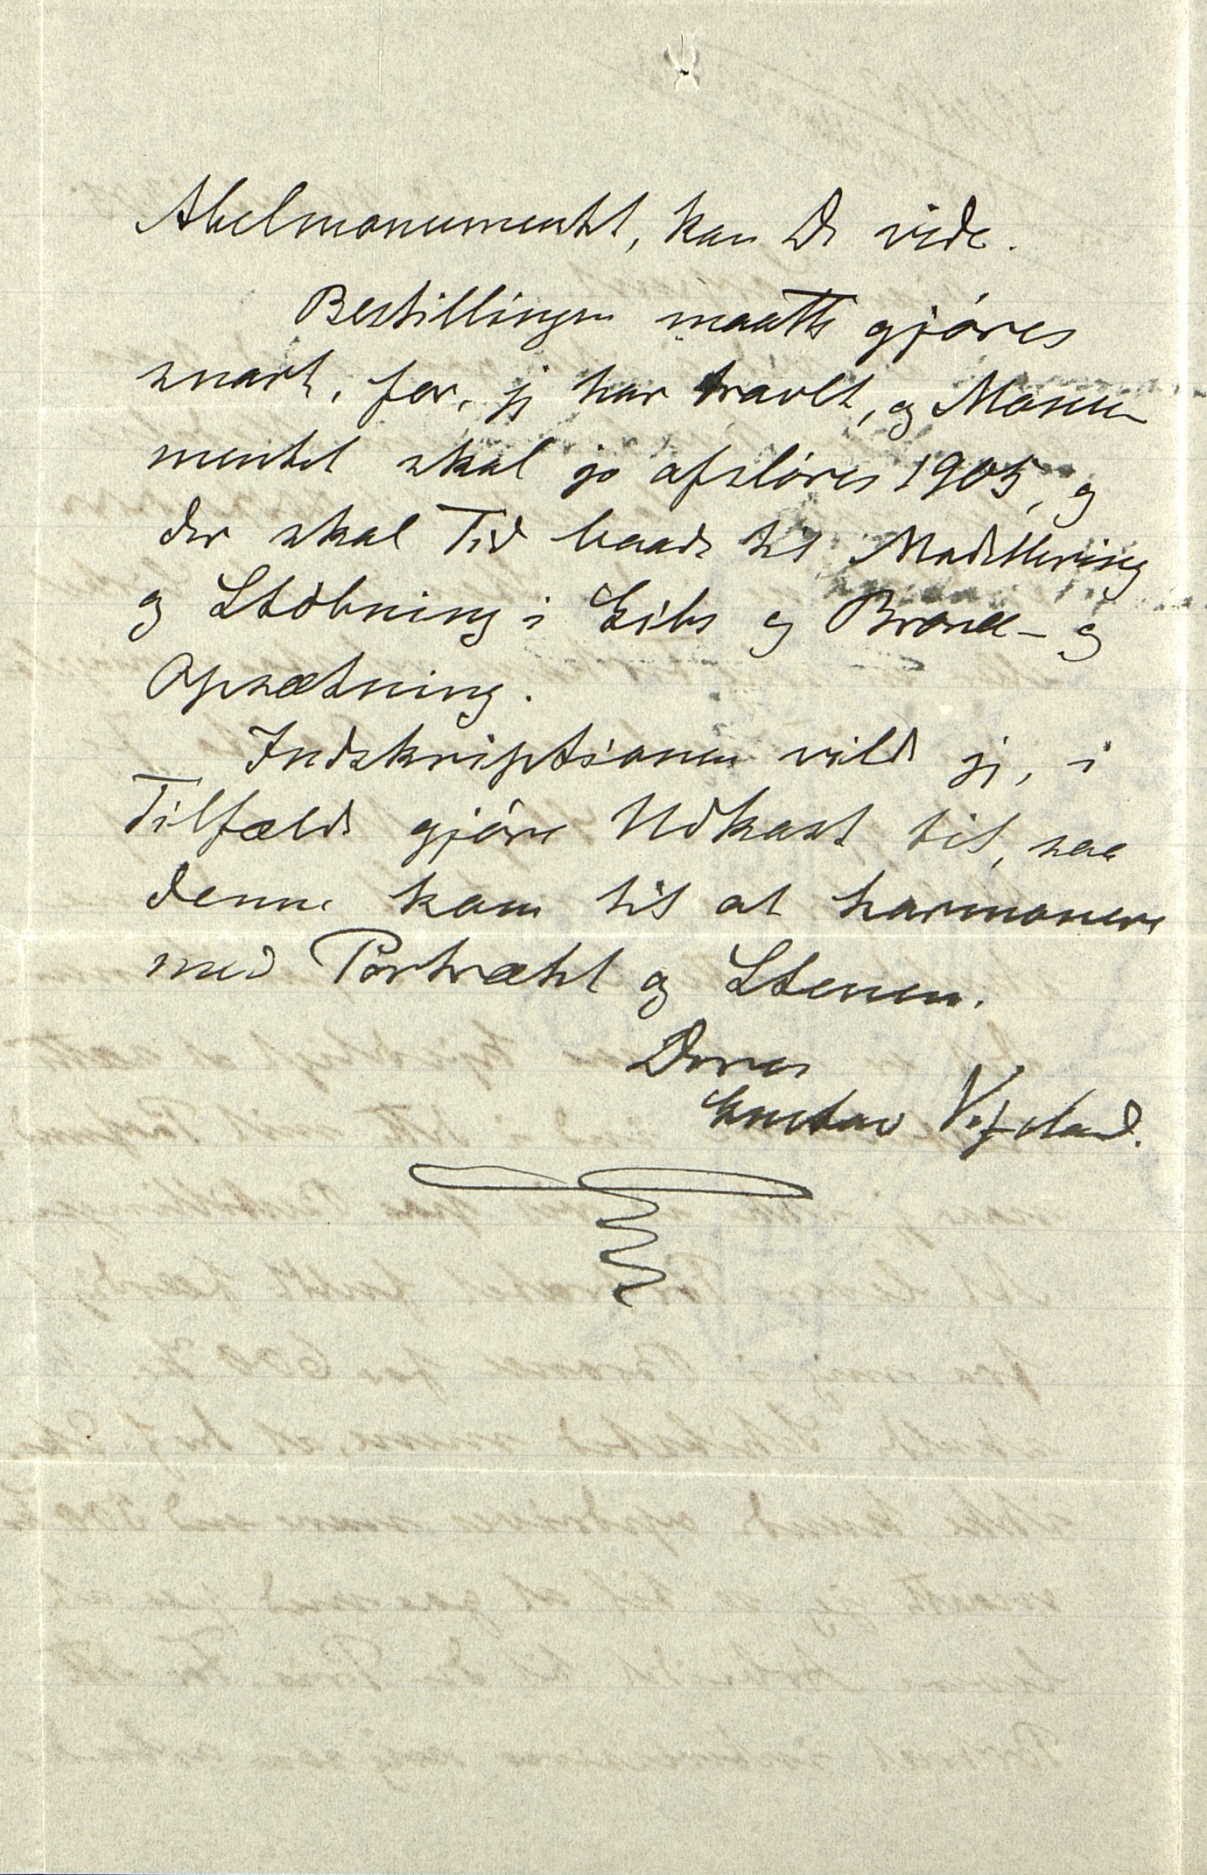 Abelmonumentet, kan De vide.
Bestillingen maatte gjøres
snart, for, jeg har travlt, og Monu-
mentet skal jo afsløres 1905, og
der skal Tid baade til Modellering
og Støbning i Gibs og Bronce – og
Opsætning.
Indskriptsionen vilde jeg, i
Tilfælde gjøre Udkast til, saa
denne kom til at harmonere
med Portrættet og Stenen.
Deres
Gustav Vigeland.